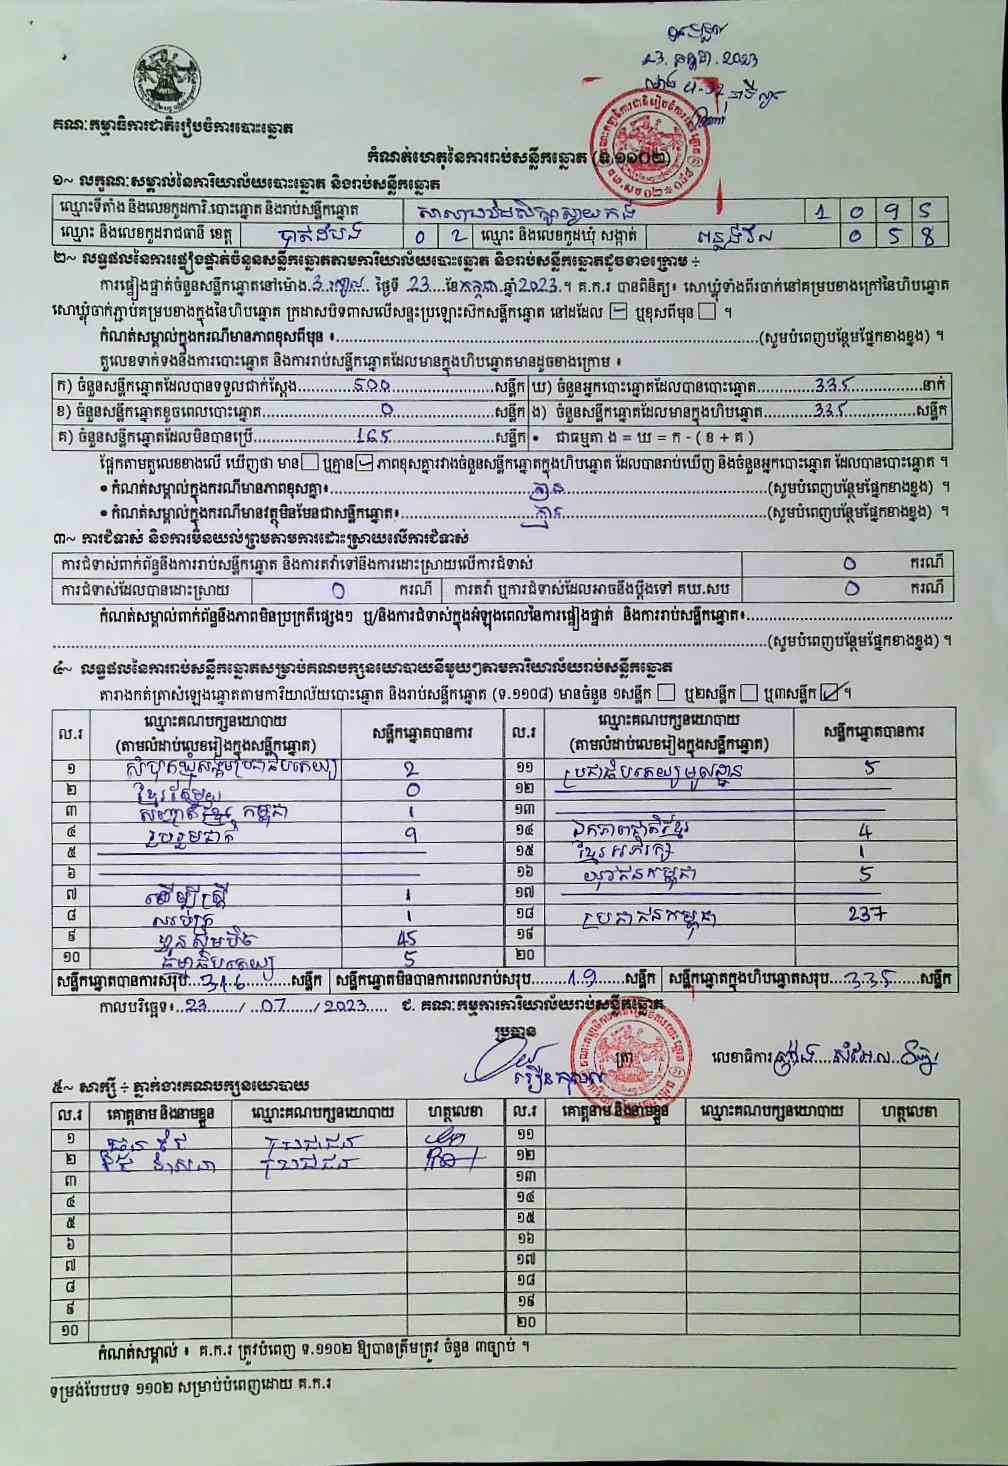 ២៣. កក្កដា. ២០២៣
គណៈកម្មាធិការជាតិរៀបចំការបោះឆ្នោត
កំណត់ហេតុនៃការរាប់សន្លឹកឆ្នោត (ទ.១១០២)
១~ លក្ខណៈសម្គាល់នៃការិយាល័យបោះឆ្នោត និងរាប់សន្លឹកឆ្នោត
ឈ្មោះទីតាំង និងលេខកូដការិ.បោះឆ្នោត និងរាប់សន្លឹកឆ្នោត 1 0 9 5
ឈ្មោះ និងលេខកូដរាជធានី ខេត្ត បាត់ដំបង 0 2 ឈ្មោះ និងលេខកូដឃុំ សង្កាត់ 0 5 8
២~ លទ្ធផលនៃការផ្ទៀងផ្ទាត់ចំនួនសន្លឹកឆ្នោតតាមការិយាល័យបោះឆ្នោត និងរាប់សន្លឹកឆ្នោតដូចខាងក្រោម ÷
ការផ្ទៀងផ្ទាត់ចំនួនសន្លឹកឆ្នោតនៅម៉ោង 3 ថ្ងៃទី 23 ខែកក្កដា ឆ្នាំ2023 ។ គ.ក.រ បានពិនិត្យ៖ សោឃ្លុំទាំងពីរចាក់នៅគម្របខាងក្រៅនៃហិបឆ្នោត
សោឃ្លុំចាក់ភ្ជាប់គម្របខាងក្នុងនៃហិបឆ្នោត ក្រដាសបិទពាសលើសន្ទះប្រឡោះស៊កសន្លឹកឆ្នោត នៅដដែល ឬខុសពីមុន ។
កំណត់សម្គាល់ក្នុងករណីមានភាពខុសពីមុន ៖ (សូមបំពេញបន្ថែមផ្នែកខាងខ្នង) ។
តួលេខទាក់ទងនឹងការបោះឆ្នោត និងការរាប់សន្លឹកឆ្នោតដែលមានក្នុងហិបឆ្នោតមានដូចខាងក្រោម ៖
ក) ចំនួនសន្លឹកឆ្នោតដែលបានទទួលជាក់ស្តែង 500 សន្លឹក ឃ) ចំនួនអ្នកបោះឆ្នោតដែលបានបោះឆ្នោត 335 នាក់
ខ) ចំនួនសន្លឹកឆ្នោតខូចពេលបោះឆ្នោត 0 សន្លឹក ង) ចំនួនសន្លឹកឆ្នោតដែលមានក្នុងហិបឆ្នោត 335 សន្លឹក
គ) ចំនួនសន្លឹកឆ្នោតដែលមិនបានប្រើ 165 សន្លឹក • ជាធម្មតា ង = ឃ = ក - ( ខ + គ )
ផ្អែកតាមតួលេខខាងលើ ឃើញថា មាន ឬគ្មាន ភាពខុសគ្នារវាងចំនួនសន្លឹកឆ្នោតក្នុងហិបឆ្នោត ដែលបានរាប់ឃើញ និងចំនួនអ្នកបោះឆ្នោត ដែលបានបោះឆ្នោត ។
• កំណត់សម្គាល់ក្នុងករណីមានភាពខុសគ្នា៖ គ្មាន (សូមបំពេញបន្ថែមផ្នែកខាងខ្នង) ។
• កំណត់សម្គាល់ក្នុងករណីមានវត្ថុមិនមែនជាសន្លឹកឆ្នោត៖ គ្មាន (សូមបំពេញបន្ថែមផ្នែកខាងខ្នង) ។
៣~ ការជំទាស់ និងការមិនយល់ព្រមតាមការដោះស្រាយលើការជំទាស់
ការជំទាស់ពាក់ព័ន្ធនឹងការរាប់សន្លឹកឆ្នោត និងការតវ៉ាទៅនឹងការដោះស្រាយលើការជំទាស់ 0 ករណី
ការជំទាស់ដែលបានដោះស្រាយ 0 ករណី ការតវ៉ា ឬការជំទាស់ដែលអាចនឹងប្តឹងទៅ គឃ.សប 0 ករណី
កំណត់សម្គាល់ពាក់ព័ន្ធនឹងភាពមិនប្រក្រតីផ្សេងៗ ឬ/និងការជំទាស់ក្នុងអំឡុងពេលនៃការផ្ទៀងផ្ទាត់ និងការរាប់សន្លឹកឆ្នោត៖
(សូមបំពេញបន្ថែមផ្នែកខាងខ្នង) ។
៤~ លទ្ធផលនៃការរាប់សន្លឹកឆ្នោតសម្រាប់គណបក្សនយោបាយនីមួយៗតាមការិយាល័យរាប់សន្លឹកឆ្នោត
តារាងកត់ត្រាសំឡេងឆ្នោតតាមការិយាល័យបោះឆ្នោត និងរាប់សន្លឹកឆ្នោត (ទ.១១០៨) មានចំនួន ១សន្លឹក ឬ២សន្លឹក ឬ៣សន្លឹក ។
ល.រ ឈ្មោះគណបក្សនយោបាយ (តាមលំដាប់លេខរៀងក្នុងសន្លឹកឆ្នោត) សន្លឹកឆ្នោតបានការ ល.រ ឈ្មោះគណបក្សនយោបាយ (តាមលំដាប់លេខរៀងក្នុងសន្លឹកឆ្នោត) សន្លឹកឆ្នោតបានការ
១ សំបុកឃ្មុំសង្គមប្រជាធិបតេយ្យ 2 ១១ ប្រជាធិបតេយ្យមូលដ្ឋាន 5
២ ខ្មែររួមរួម 0 ១២
៣ សញ្ជាតិខ្មែរ កម្ពុជា 1 ១៣
៤ រួបរួមជាតិ 9 ១៤ ឯកភាពជាតិខ្មែរ 4
៥ ១៥ ខ្មែរអភិរក្ស 1
៦ ១៦ យុវជនកម្ពុជា 5
៧ ដើម្បីស្ត្រី 1 ១៧
៨ 1 ១៨ ប្រជាជនកម្ពុជា 237
៩ ហ្វ៊ុនស៊ិនប៉ិច 45 ១៩
១០ ធម្មាធិបតេយ្យ 5 ២០
សន្លឹកឆ្នោតបានការសរុប 316 សន្លឹក សន្លឹកឆ្នោតមិនបានការពេលរាប់សរុប 19 សន្លឹក សន្លឹកឆ្នោតក្នុងហិបឆ្នោតសរុប 335 សន្លឹក
កាលបរិច្ឆេទ៖ 23 / 07 / 2023 ជ. គណៈកម្មការការិយាល័យរាប់សន្លឹកឆ្នោត
ប្រធាន
ត្រា លេខាធិការ
៥~ សាក្សី ÷ ភ្នាក់ងារគណបក្សនយោបាយ
ល.រ គោត្តនាម និងនាមខ្លួន ឈ្មោះគណបក្សនយោបាយ ហត្ថលេខា ល.រ គោត្តនាម និងនាមខ្លួន ឈ្មោះគណបក្សនយោបាយ ហត្ថលេខា
១ ប្រជាជន ១១
២ ប្រជាជន ១២
៣ ១៣
៤ ១៤
៥ ១៥
៦ ១៦
៧ ១៧
៨ ១៨
៩ ១៩
១០ ២០
កំណត់សម្គាល់ ៖ គ.ក.រ ត្រូវបំពេញ ទ.១១០២ ឱ្យបានត្រឹមត្រូវ ចំនួន ៣ច្បាប់ ។
ទម្រង់បែបបទ ១១០២ សម្រាប់បំពេញដោយ គ.ក.រ